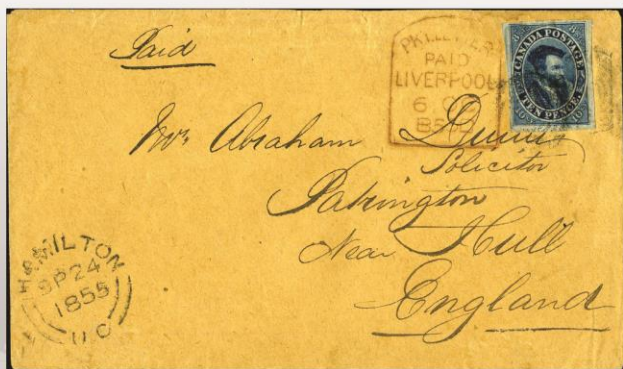 Paid
PKT. LETTER
PAID
LIVERPOOL
6 OC
CANADA POSTAGE
TEN PENCE
Mr. Abraham
Solicitor
Near Hull
England
HAMILTON
SP 24
1855
U C